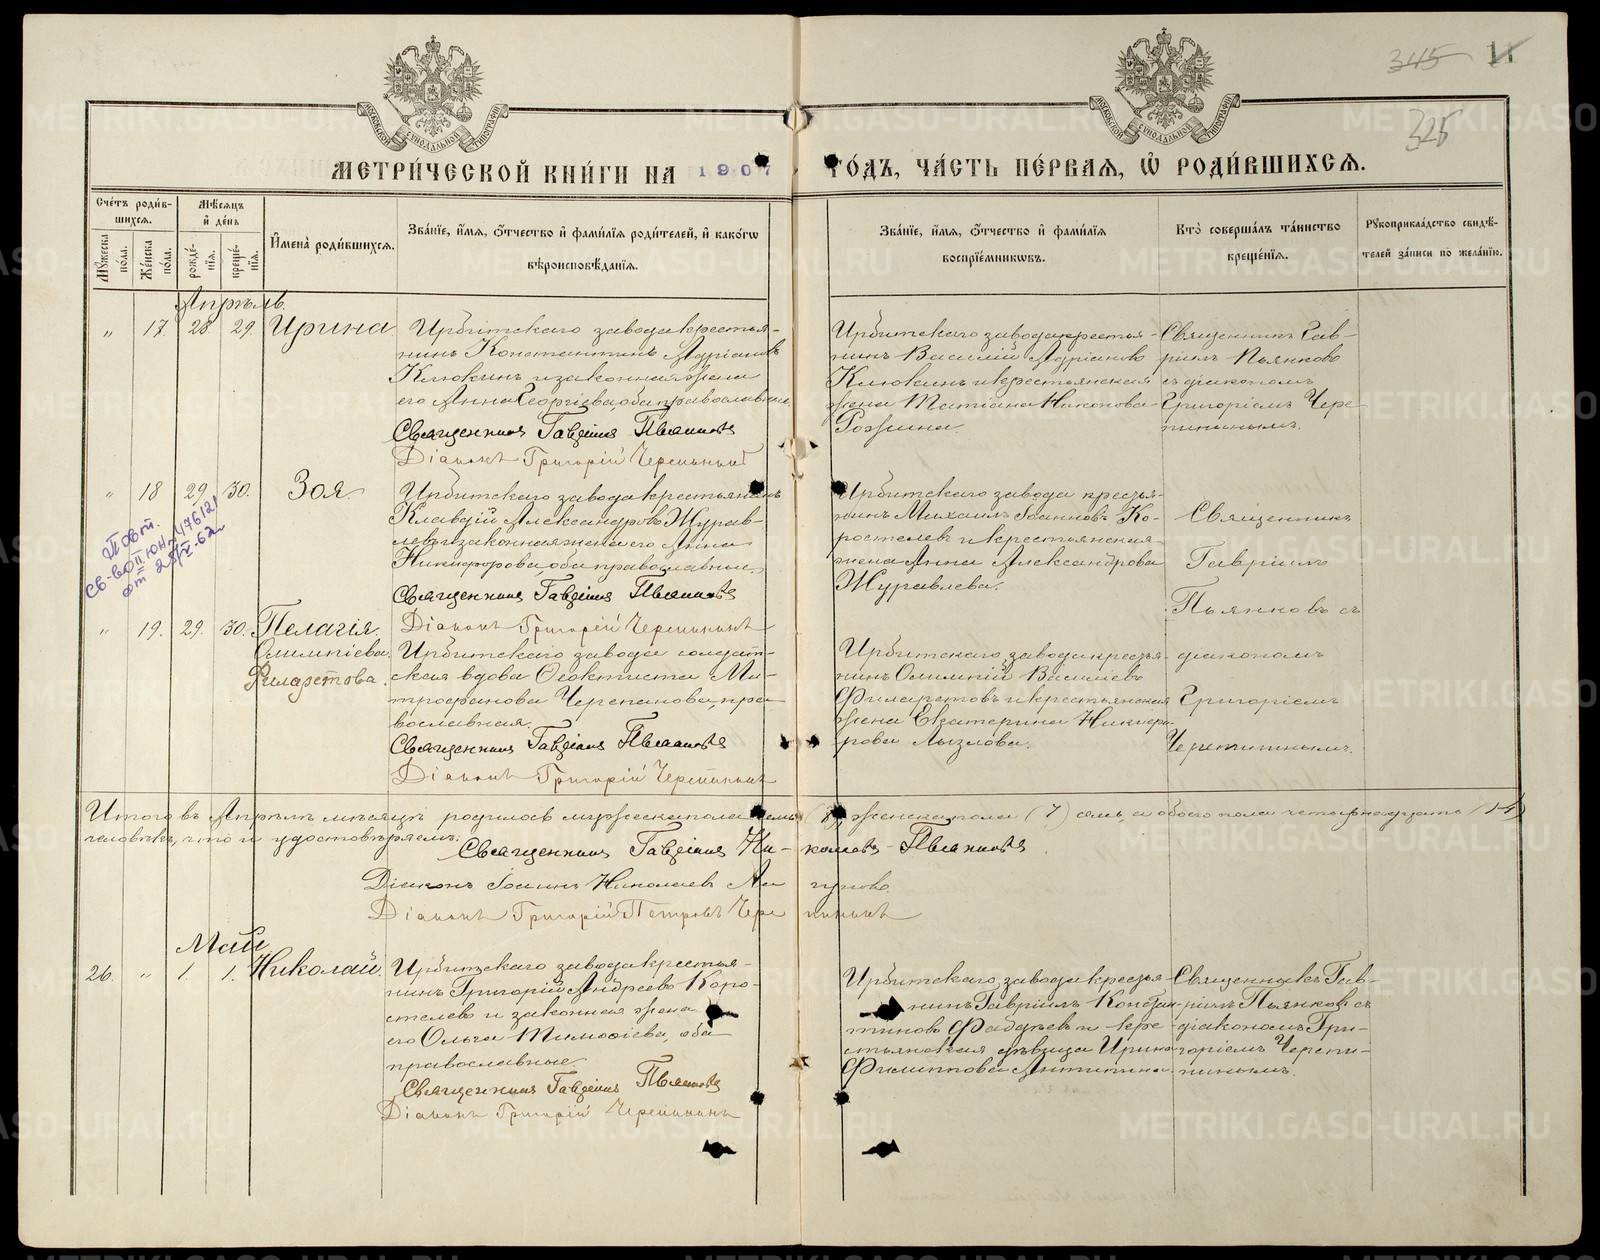 345 11
325
МЕТРИ́ЧЕСКОЙ КНИ́ГИ НА 1907 ГО́ДЪ, ЧА́СТЬ ПЕ́РВАЯ, Ѡ РОДИ́ВШИХСЯ.
Сче́тъ роди́в-
шихся.
Мꙋ́жеска по́ла.
Же́нска по́ла.
Мѣ́сяцъ
и҆ де́нь
рожде́-
нїя.
креще́-
нїя.
И҆мена̀ роди́вшихся.
Зва́нїе, и҆́мя, ѻ҆́тчество и҆ фами́лїя роди́телей, и҆ како́гѡ
вѣроисповѣ́данїя.
Зва́нїе, и҆́мя, ѻ҆́тчество и҆ фами́лїя
воспрїе́мникѡвъ.
Кто̀ соверша́лъ та́инство
креще́нїя.
Рꙋкоприкла́дство свидѣ́-
телей за́писи по жела́нїю.
Апрѣль.
„ 17. 28 29. Ирина
Ирбитскаго завода крестья-
нинъ Константинъ Адріановъ
Клюкинъ и законная жена
его Анна Георгіева, оба православные.
Священникъ Гавріилъ Пьянковъ
Діаконъ Григорій Черепынинъ
Ирбитскаго завода крестья-
нинъ Василій Адріановъ
Клюкинъ и крестьянская
жена Татіана Никонова
Рожина.
Священникъ Гав-
ріилъ Пьянковъ
съ діакономъ
Григоріемъ Чере-
пынинымъ.
„ 18 29 30. Зоя
Ирбитскаго завода крестьянинъ
Клавдій Александровъ Журав-
левъ и законная жена его Анна
Никифорова, оба православные.
Священникъ Гавріилъ Пьянковъ
Діаконъ Григорій Черепынинъ
Ирбитскаго завода крестья-
нинъ Михаилъ Іоанновъ Ко-
ростелевъ и крестьянская
жена Анна Александрова
Журавлева.
Священникъ
Гавріилъ
Пьянковъ съ
діакономъ
Григоріемъ
Черепынинымъ.
Повт.
св-во II ЮН № 476121
от 25/X-62
„ 19. 29. 30. Пелагія
Олимпіева
Филаретова.
Ирбитскаго завода солдат-
ская вдова Ѳеоктиста Ми-
трофанова Черепанова, пра-
вославная.
Священникъ Гавріилъ Пьянковъ
Діаконъ Григорій Черепынинъ
Ирбитскаго завода крестья-
нинъ Олимпій Василіевъ
Филаретовъ и крестьянская
жена Екатерина Никифо-
рова Лызлова.
Итого въ Апрѣлѣ мѣсяцѣ родилось мужеска пола семь (7) женска пола (7) семь, а обоего пола четырнадцать (14)
человѣкъ, что и удостовѣряемъ:
Священникъ Гавріилъ Ни-колаевъ Пьянковъ.
Діаконъ Іоаннъ Николаевъ
Діаконъ Григорій Петровъ Черепынинъ
Май
26. „ 1. 1. Николай.
Ирбитскаго завода крестья-
нинъ Григорій Андреевъ Коро-
стелевъ и законная жена
его Ольга Тимоѳіева, оба
православные
Священникъ Гавріилъ Пьянковъ
Діаконъ Григорій Черепынинъ
Ирбитскаго завода крестья-
нинъ Гавріилъ Констан-
тиновъ Фаддѣевъ и кре-
стьянская дѣвица Ирина
Филиппова Антипина.
Священникъ Гав-
ріилъ Пьянковъ съ
діакономъ Гри-
горіемъ Черепы-
нинымъ.
METRIKI.GASO-URAL.RU